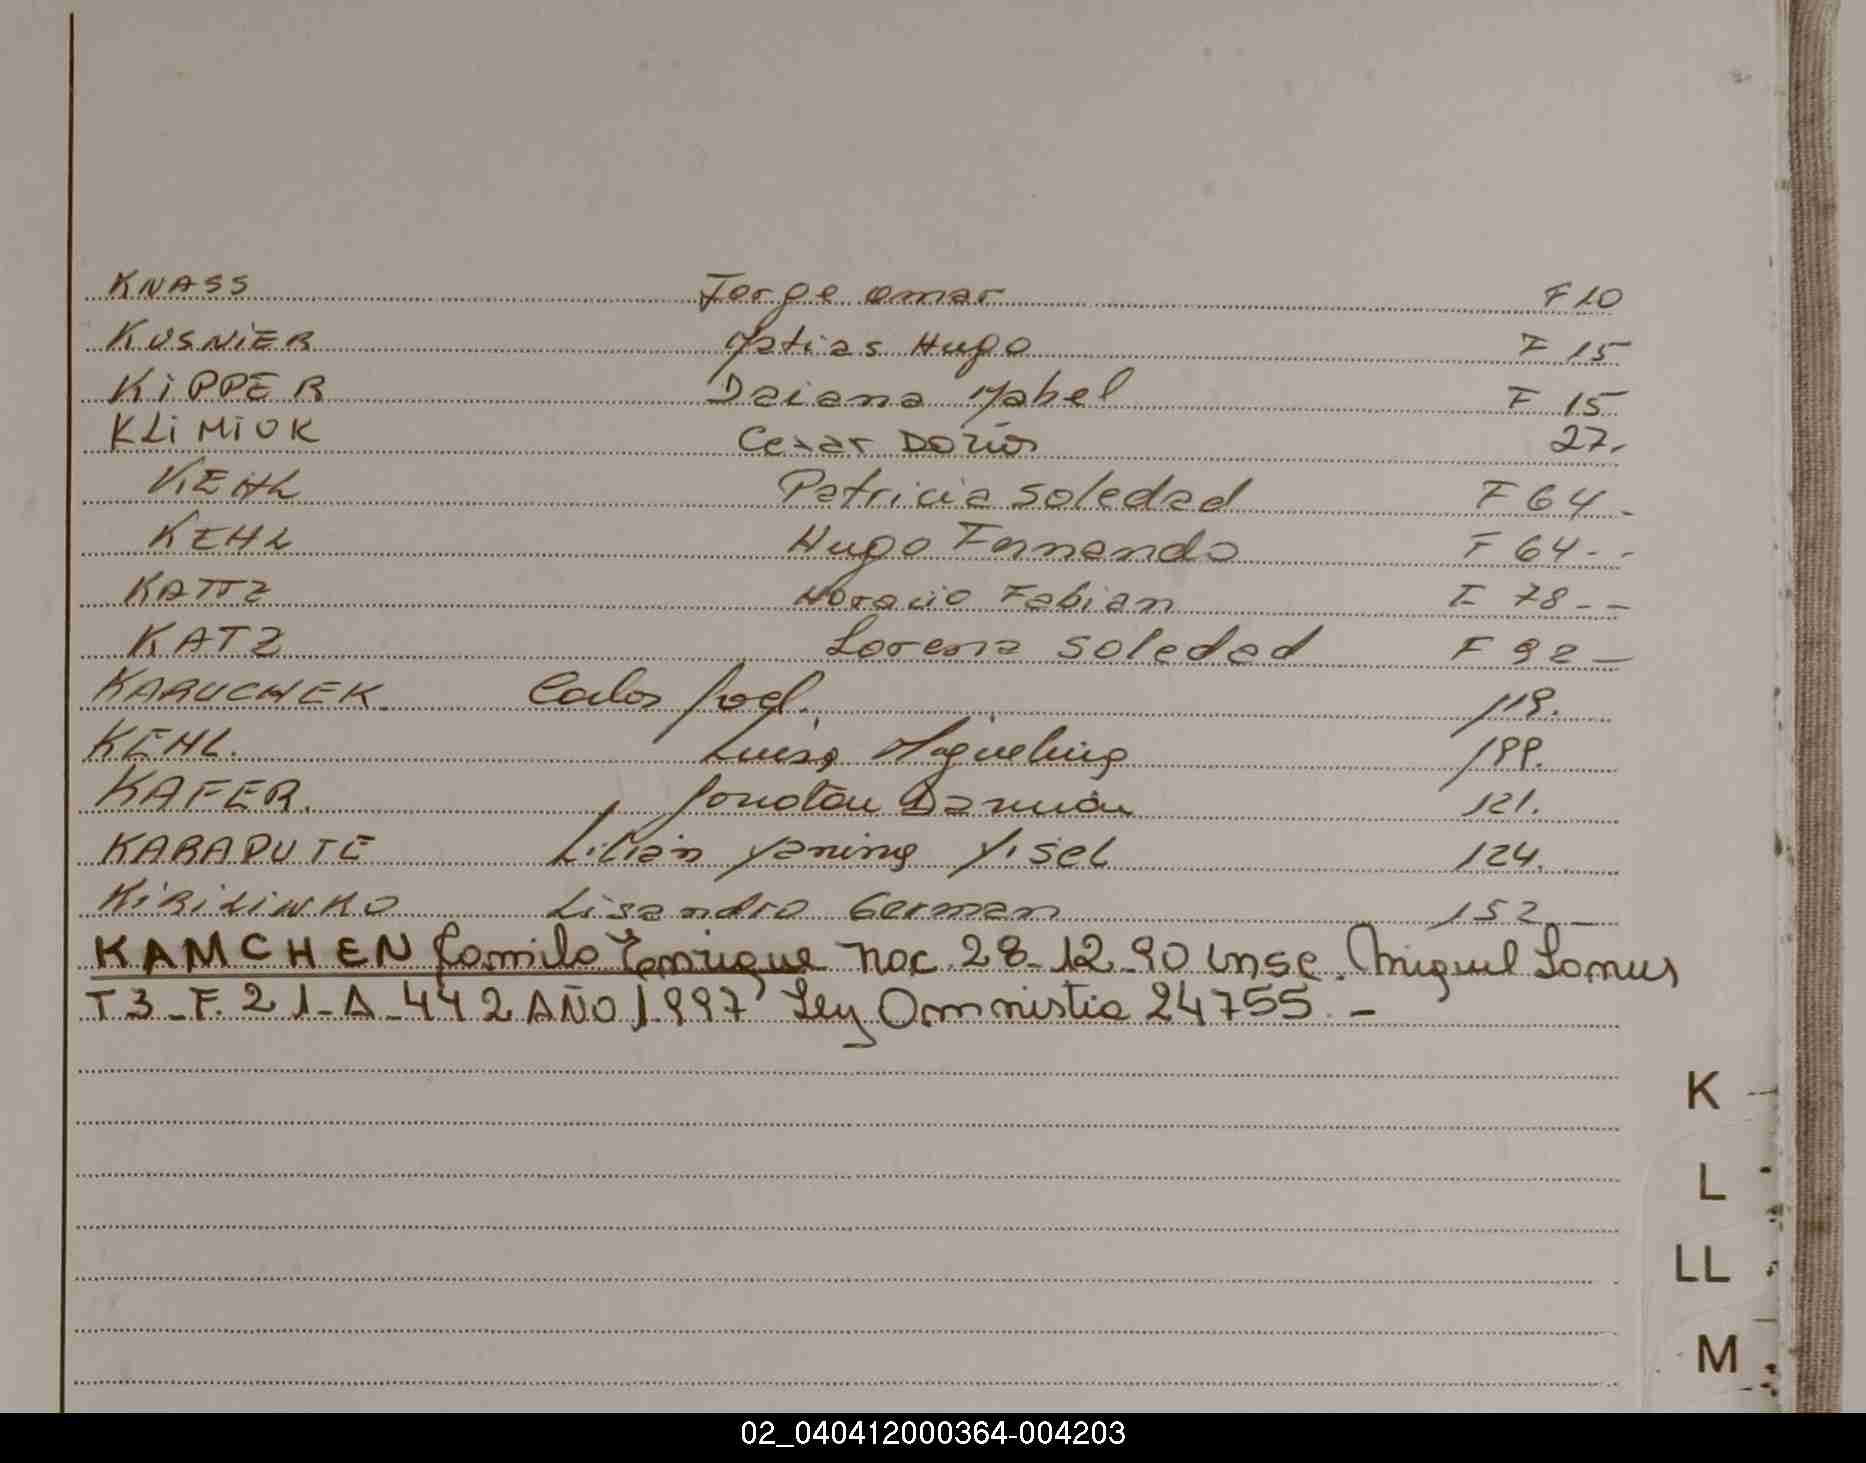 KNASS Jorge omar F 10
KUSNiER Matias Hugo F 15
KiPPER Daiana Mabel F 15
KLiMiUK Cesar Dario 27.
KEHL Patricia Soledad F 64 -
KEHL Hugo Fernando F 64 - -
KATTZ Horacio Fabian F 78 - -
KATZ Lorena Soledad F 92 -
KARUCHEK. Carlos Joel. 119.
KEHL. Luisa Miguelina 199.
KAFER. Jonotan Damian 121.
KARAPUTE Lilian Yanina Yisel 124.
KiRiLiNKO Lisandro German 152 -
KAMCHEN Camilo Enrique nac. 28-12-90 insc. Miguel Lanus
T 3 - F. 21 - A - 442 AÑO 1997 Ley Omnistia 24755. -
K
L
LL
M
02_040412000364-004203